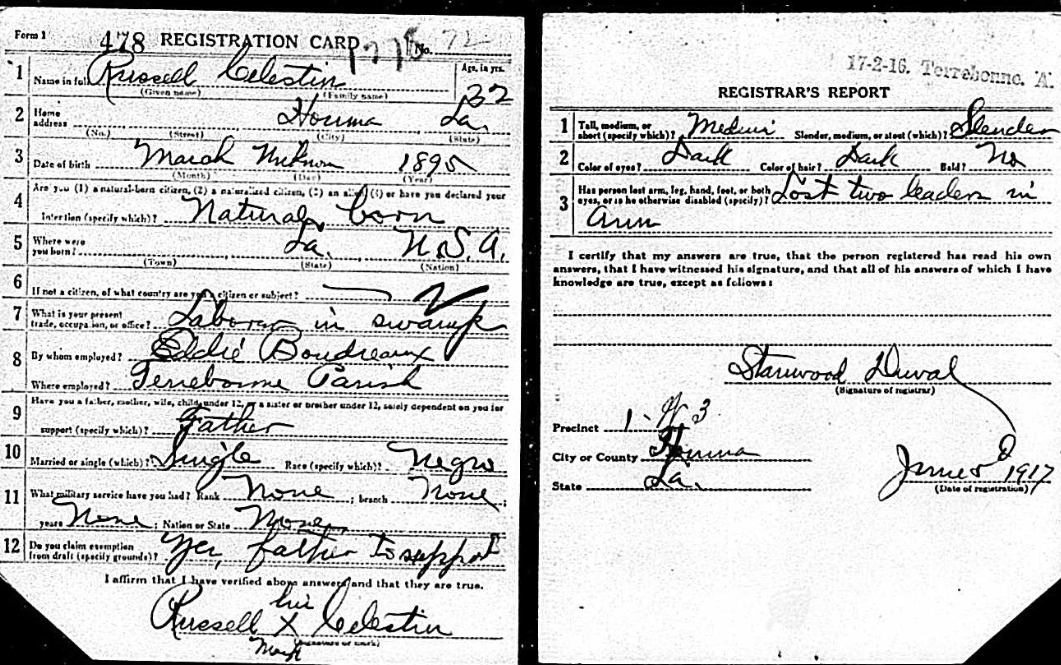 Form 1 478 REGISTRATION CARD 1778 No. 72
1 Name in full Russell Celestin Age, in yrs.
(Given name) (Family name) 22
2 Home address Houma La.
(No.) (Street) (City) (State)
3 Date of birth March Unknown 1895
(Month) (Day) (Year)
4 Are you (1) a natural-born citizen, (2) a naturalized citizen, (3) an alien, (4) or have you declared your
intention (specify which)? Natural born
5 Where were you born? La. U.S.A.
(Town) (State) (Nation)
6 If not a citizen, of what country are you a citizen or subject?
7 What is your present trade, occupation, or office? Laborer in swamp
8 By whom employed? Eddie Boudreaux
Where employed? Terrebonne Parish
9 Have you a father, mother, wife, child under 12, or a sister or brother under 12, solely dependent on you for
support (specify which)? Father
10 Married or single (which)? Single Race (specify which)? Negro
11 What military service have you had? Rank None ; branch None ;
years None ; Nation or State None
12 Do you claim exemption from draft (specify grounds)? Yes, father to support
I affirm that I have verified above answers and that they are true.
his
Russell X Celestin
mark (Signature or mark)
17-2-16. Terrebonne, A.
REGISTRAR'S REPORT
1 Tall, medium, or short (specify which)? Medium Slender, medium, or stout (which)? Slender
2 Color of eyes? Dark Color of hair? Dark Bald? No
3 Has person lost arm, leg, hand, foot, or both eyes, or is he otherwise disabled (specify)? Lost two leaders in
arm
I certify that my answers are true, that the person registered has read his own
answers, that I have witnessed his signature, and that all of his answers of which I have
knowledge are true, except as follows:
Stanwood Duval
(Signature of registrar)
Precinct 1 W 3
City or County Houma
State La.
June 5 1917
(Date of registration)